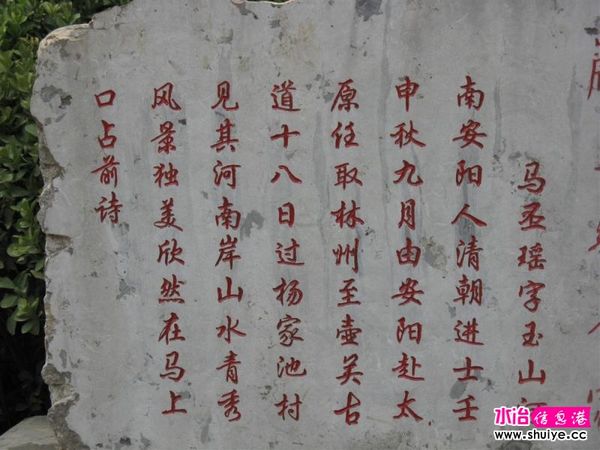 马丕瑶字玉山河
南安阳人清朝进士壬
申秋九月由安阳赴太
原任取林州至壶关古
道十八日过杨家池村
见其河南岸山水青秀
风景独美欣然在马上
口占前诗
水冶信息港
www.shuiye.cc